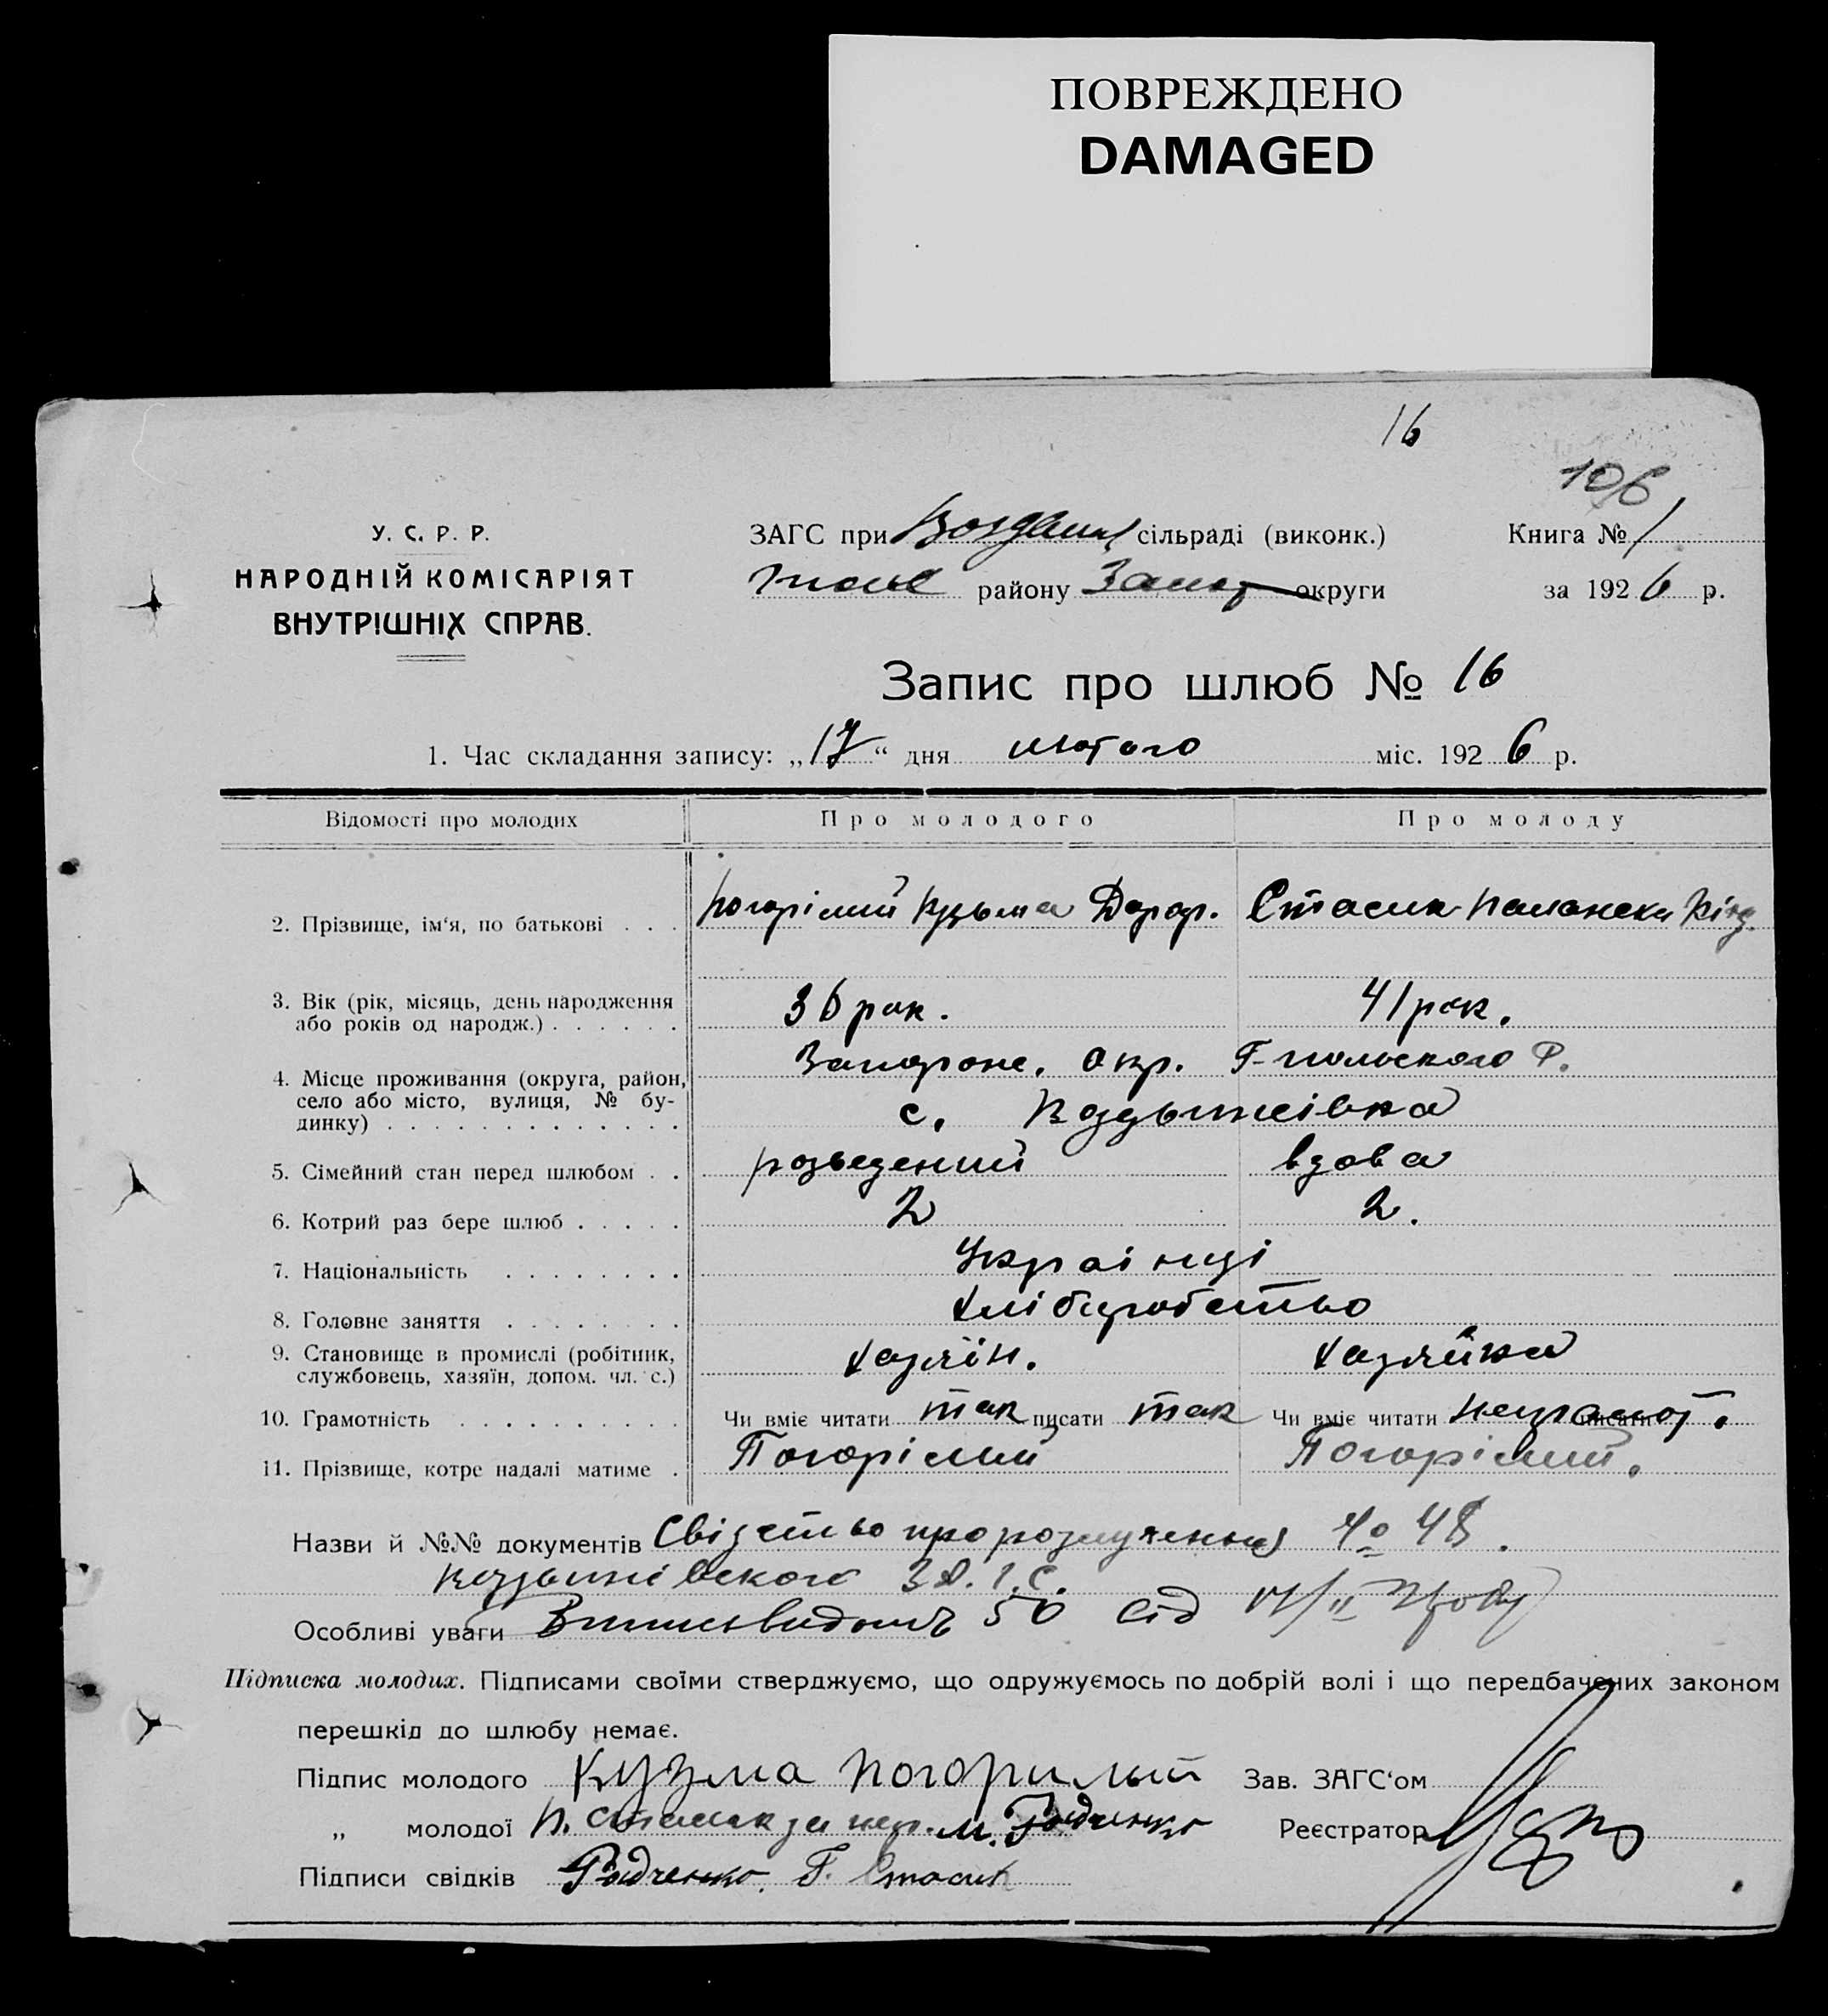 ПОВРЕЖДЕНО
DAMAGED
16
106
У. С. Р. Р.
НАРОДНІЙ КОМІСАРІЯТ
ВНУТРІШНІХ СПРАВ.
ЗАГС при сільраді (виконк.) Книга № 1
району Запор округи за 1926 р.
Запис про шлюб № 16
1. Час складання запису: „17“ дня лютого міс. 1926 р.
Відомості про молодих Про молодого Про молоду
2. Прізвище, ім‘я, по батькові . . . Погорілий Кузьма Дороф. Стасик
3. Вік (рік, місяць, день народження
або років од народж.) . . . . . . 36 рок. 41 рок.
4. Місце проживання (округа, район, Запорожс. Окр. Г-польского Р.
село або місто, вулиця, № бу- с. Воздвижівка
динку) . . . . . . . . . . . . .
5. Сімейний стан перед шлюбом . . розведений вдова
6. Котрий раз бере шлюб . . . . . 2 2.
7. Національність . . . . . . . . Українці
8. Головне заняття . . . . . . . . хліборобство
9. Становище в промислі (робітник,
службовець, хазяїн, допом. чл. с.) хазяїн. хазяйка
10. Грамотність . . . . . . . . . . Чи вміє читати так писати так Чи вміє читати неграмот.
11. Прізвище, котре надалі матиме . Погорілий Погорілий.
Назви й №№ документів Свідетьво про розлучення № 48.
З.А.Г.С.
Особливі уваги 50 від 17/II
Підписка молодих. Підписами своїми стверджуємо, що одружуємось по добрій волі і що передбачених законом
перешкід до шлюбу немає.
Підпис молодого Кузма Погорилый Зав. ЗАГС‘ом
„ молодої П. Стасик за непр. М. Радченко Реєстратор
Підписи свідків Радченко. Г. Стасик